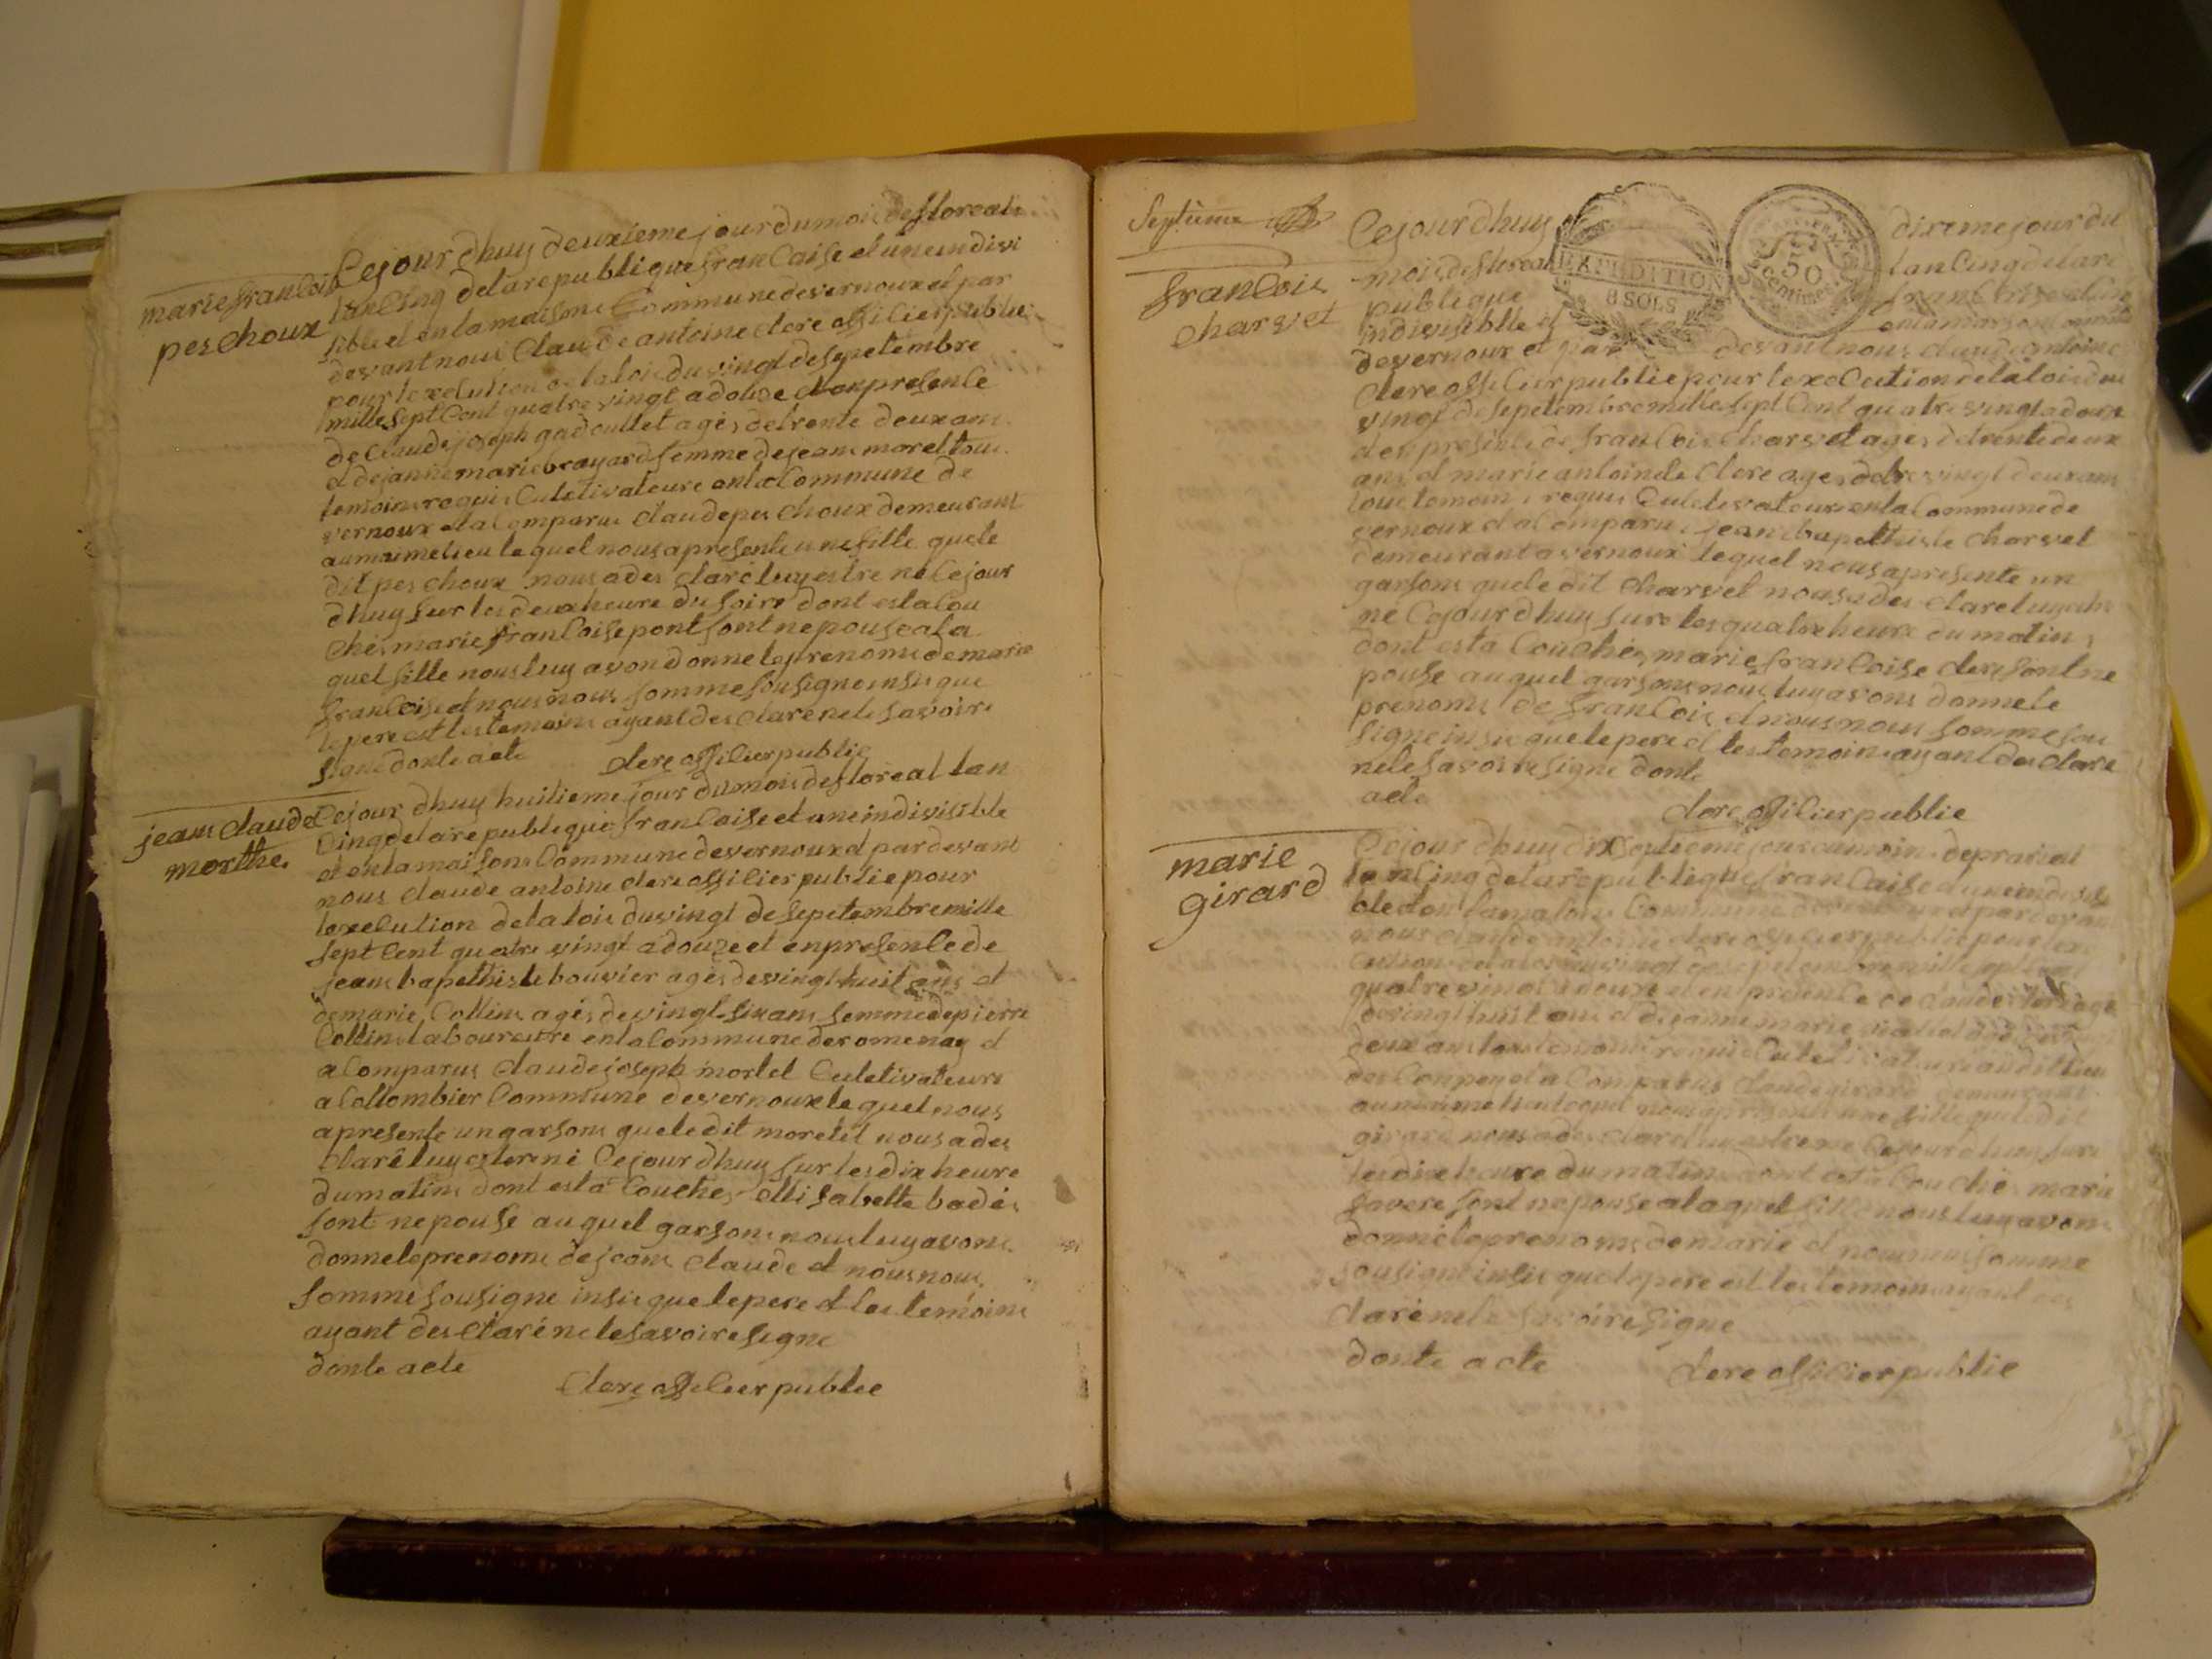 marie francoise
peschoux
Cejour dhuy deuxieme jour dumois defloreale
lan Cinq delarepublique francaise et uneindivi
sible et enlamaisons Commune devernoux et par
devant nous Claude antoine clere officier publie
pour lexecution delaloi duvingt desepetembre
mille sept Cent quatre vingt adouze et enpresence
de Claude joseph gadoullet ages detrente deux ans
et dejanne marie brayard femme dejeans morel tous
temoins requis Culetivateure enla Commune de
vernoux et a Comparus claude peschoux demeurant
aumaime lieu lequel nous apresente une fille quele
dit peschoux nous ades claré luy estre né Cejour
dhuy sur les deux heure du soire dont esta Cou
chés marie francoise pont sont ne pouse a la
quel fille nous luy avon donne le prenoms de marie
francoise et nous nous somme sousigne insis que
le pere est les temoins ayant des clare nele savoire
signe donte acte
clere officier publie
jeans claude
morthe.
Cejour dhuy huitieme jour dumois defloreal lan
Cinq delarepublique francaise et uneindivisible
et enlamaisons Commune devernoux et pardevant
nous claude antoine clere officier publie pour
lexecution delaloie duvingt desepetembre mille
sept Cent quatre vingt adouze et enpresence de
jeans bapethiste bouvier agés devingt huit ans et
demarie Collins agés devingt six ans femme de pierre
Collins laboureure enla Commune deromenay et
a Comparus claude joseph mortel Culetivateure
a Collombier Commune devernoux lequel nous
apresente un garsons quele dit moretel nous ades
claré luy estre né Cejour dhuy sur les dix heure
dumatins dont esta Couches ellisabette badés
sont ne pouse auquel garsons nous luy avons
donne le prenoms de jeans claude et nous nous
somme sousigne insis que le pere et les temoins
ayant des claré nele savoire signe
donte acte
clere officier publie
Septieme
francois
charvet
Cejour dhuy dixeme jour du
mois defloreal lan Cinq delare
publique francaise et une
indivisiblle et enlamaisons commune
devernoux et par devant nous claude antoine
clere officier publie pour lexecution delaloi du
vingt desepetembre mille sept Cent quatre vingt adouze
et enpresence de francois Charvet ages detrente deux
ans et marie antoinete clere ages de vingt deux ans
tous temoins requis Culetivateure enla Commune de
vernoux et a Comparu jeans bapetthiste charvet
demeurant avernoux lequel nous apresente un
garsons quele dit Charvet nous ades clare luy estre
né Cejour dhuy sure les quatre heure du matins
dont esta Couchés marie francoise clere sont ne
pouse auquel garsons nous luy avons donne le
prenoms de francois et nous nous somme sou
signe insis que le pere et les temoins ayant des clare
nele savoire signe donte
acte
clere officier publie
EXPEDITION
8 SOLS
50
Centimes
marie
girard
Cejour dhuy dix septieme jour dumois deprairial
lan Cinq delarepublique francaise et uneindivisi
ble et en lamaisons Commune devernoux et pardevant
nous claude antoine clere officier publie pour lexe
cution delaloi duvingt desepetembre mille sept Cent
quatre vingt adouze et en presence de claude agé
devingt huit ans et de janne marie agés
deux ans tous temoins requis Culetivateure audit lieu
et a Comparus claude girard demeurant
aumaime lieu lequel nous apresente une fille quele dit
girard nous ades clare luy estre né Cejour dhuy sure
les dix heure du matins dont esta Couchés marie
favere sont ne pouse alaquel fille nous luy avons
donné le prenoms demarie et nous nous somme
sousigne insis que le pere est les temoins ayant des
claré nele savoire signe
donte acte
clere officier publie